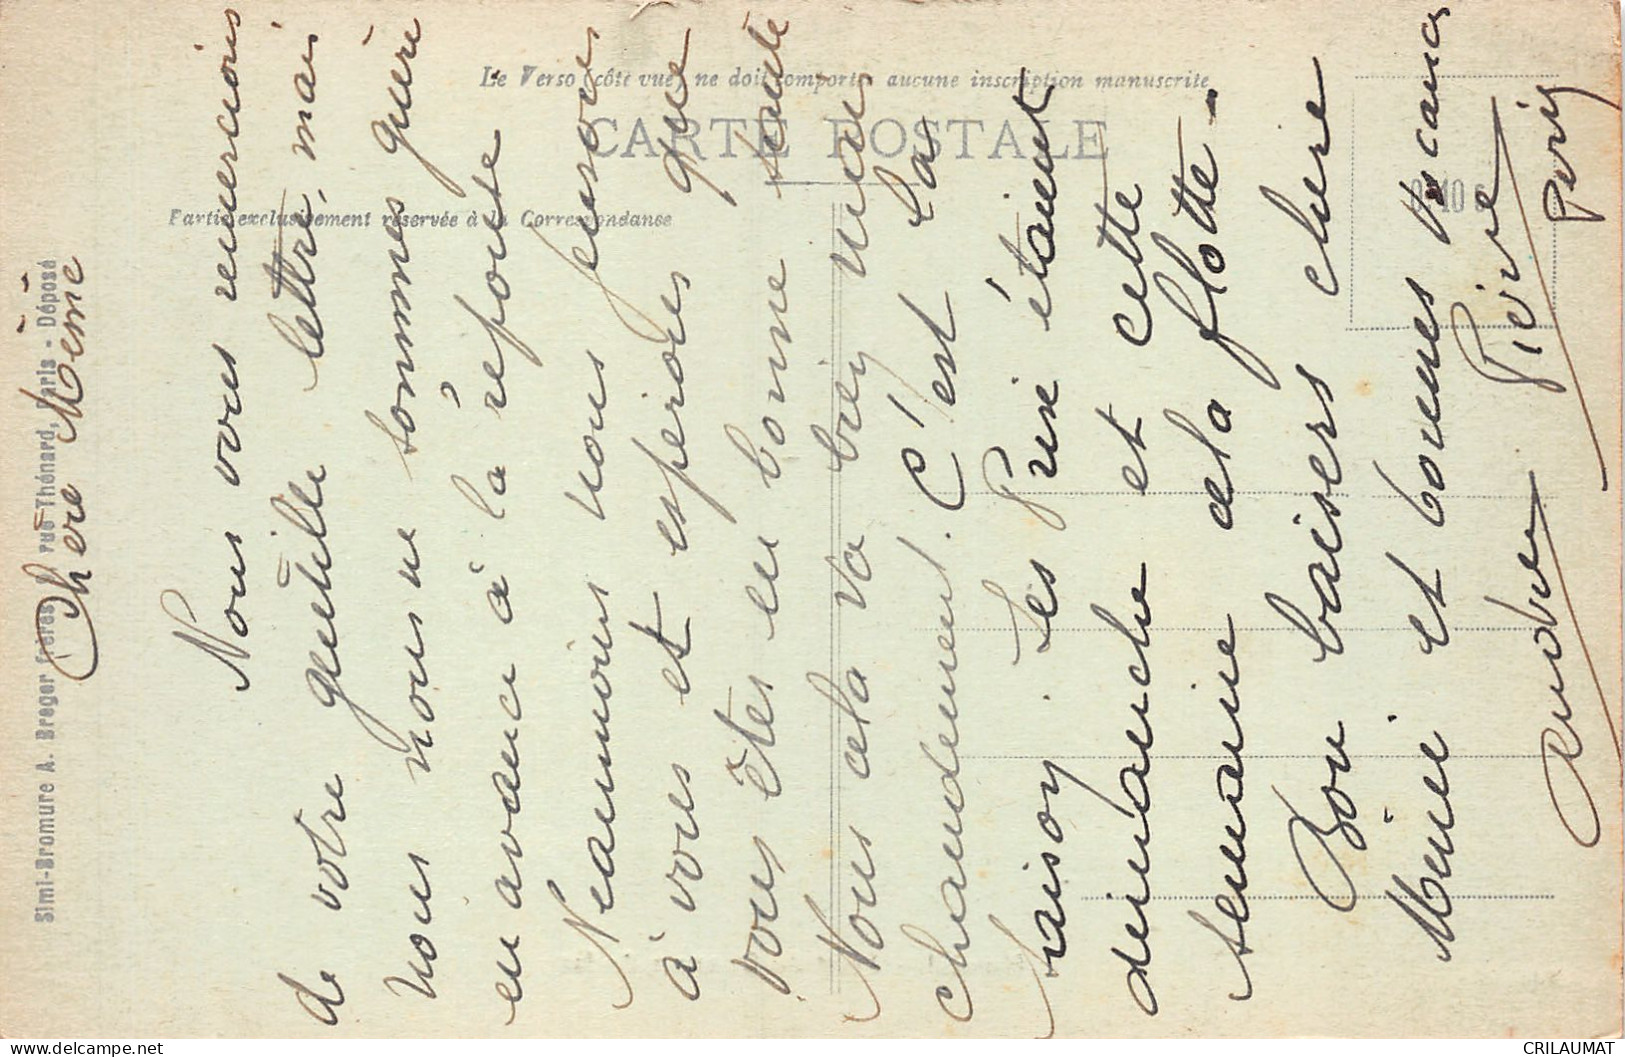 Chère Mémé
Nous vous remercions
de votre gentille lettre, mais
nous nous ne sommes guère
en avance à la réponse
Néanmoins nous pensons
à vous et espérons que
vous êtes en bonne santé
Nous cela va bien mais
chaudement. C'est la
saison. Les Prix étaient
dimanche et cette
semaine cela flotte.
Bon baisers chère
Mémé et bonnes vacances
Andrée Pierre
Simi-Bromure A. Breger Frères, rue Thénard, Paris - Déposé
Le Verso (côté vue) ne doit comporter aucune inscription manuscrite
CARTE POSTALE
Partie exclusivement réservée à la Correspondance
delcampe.net
CRILAUMAT